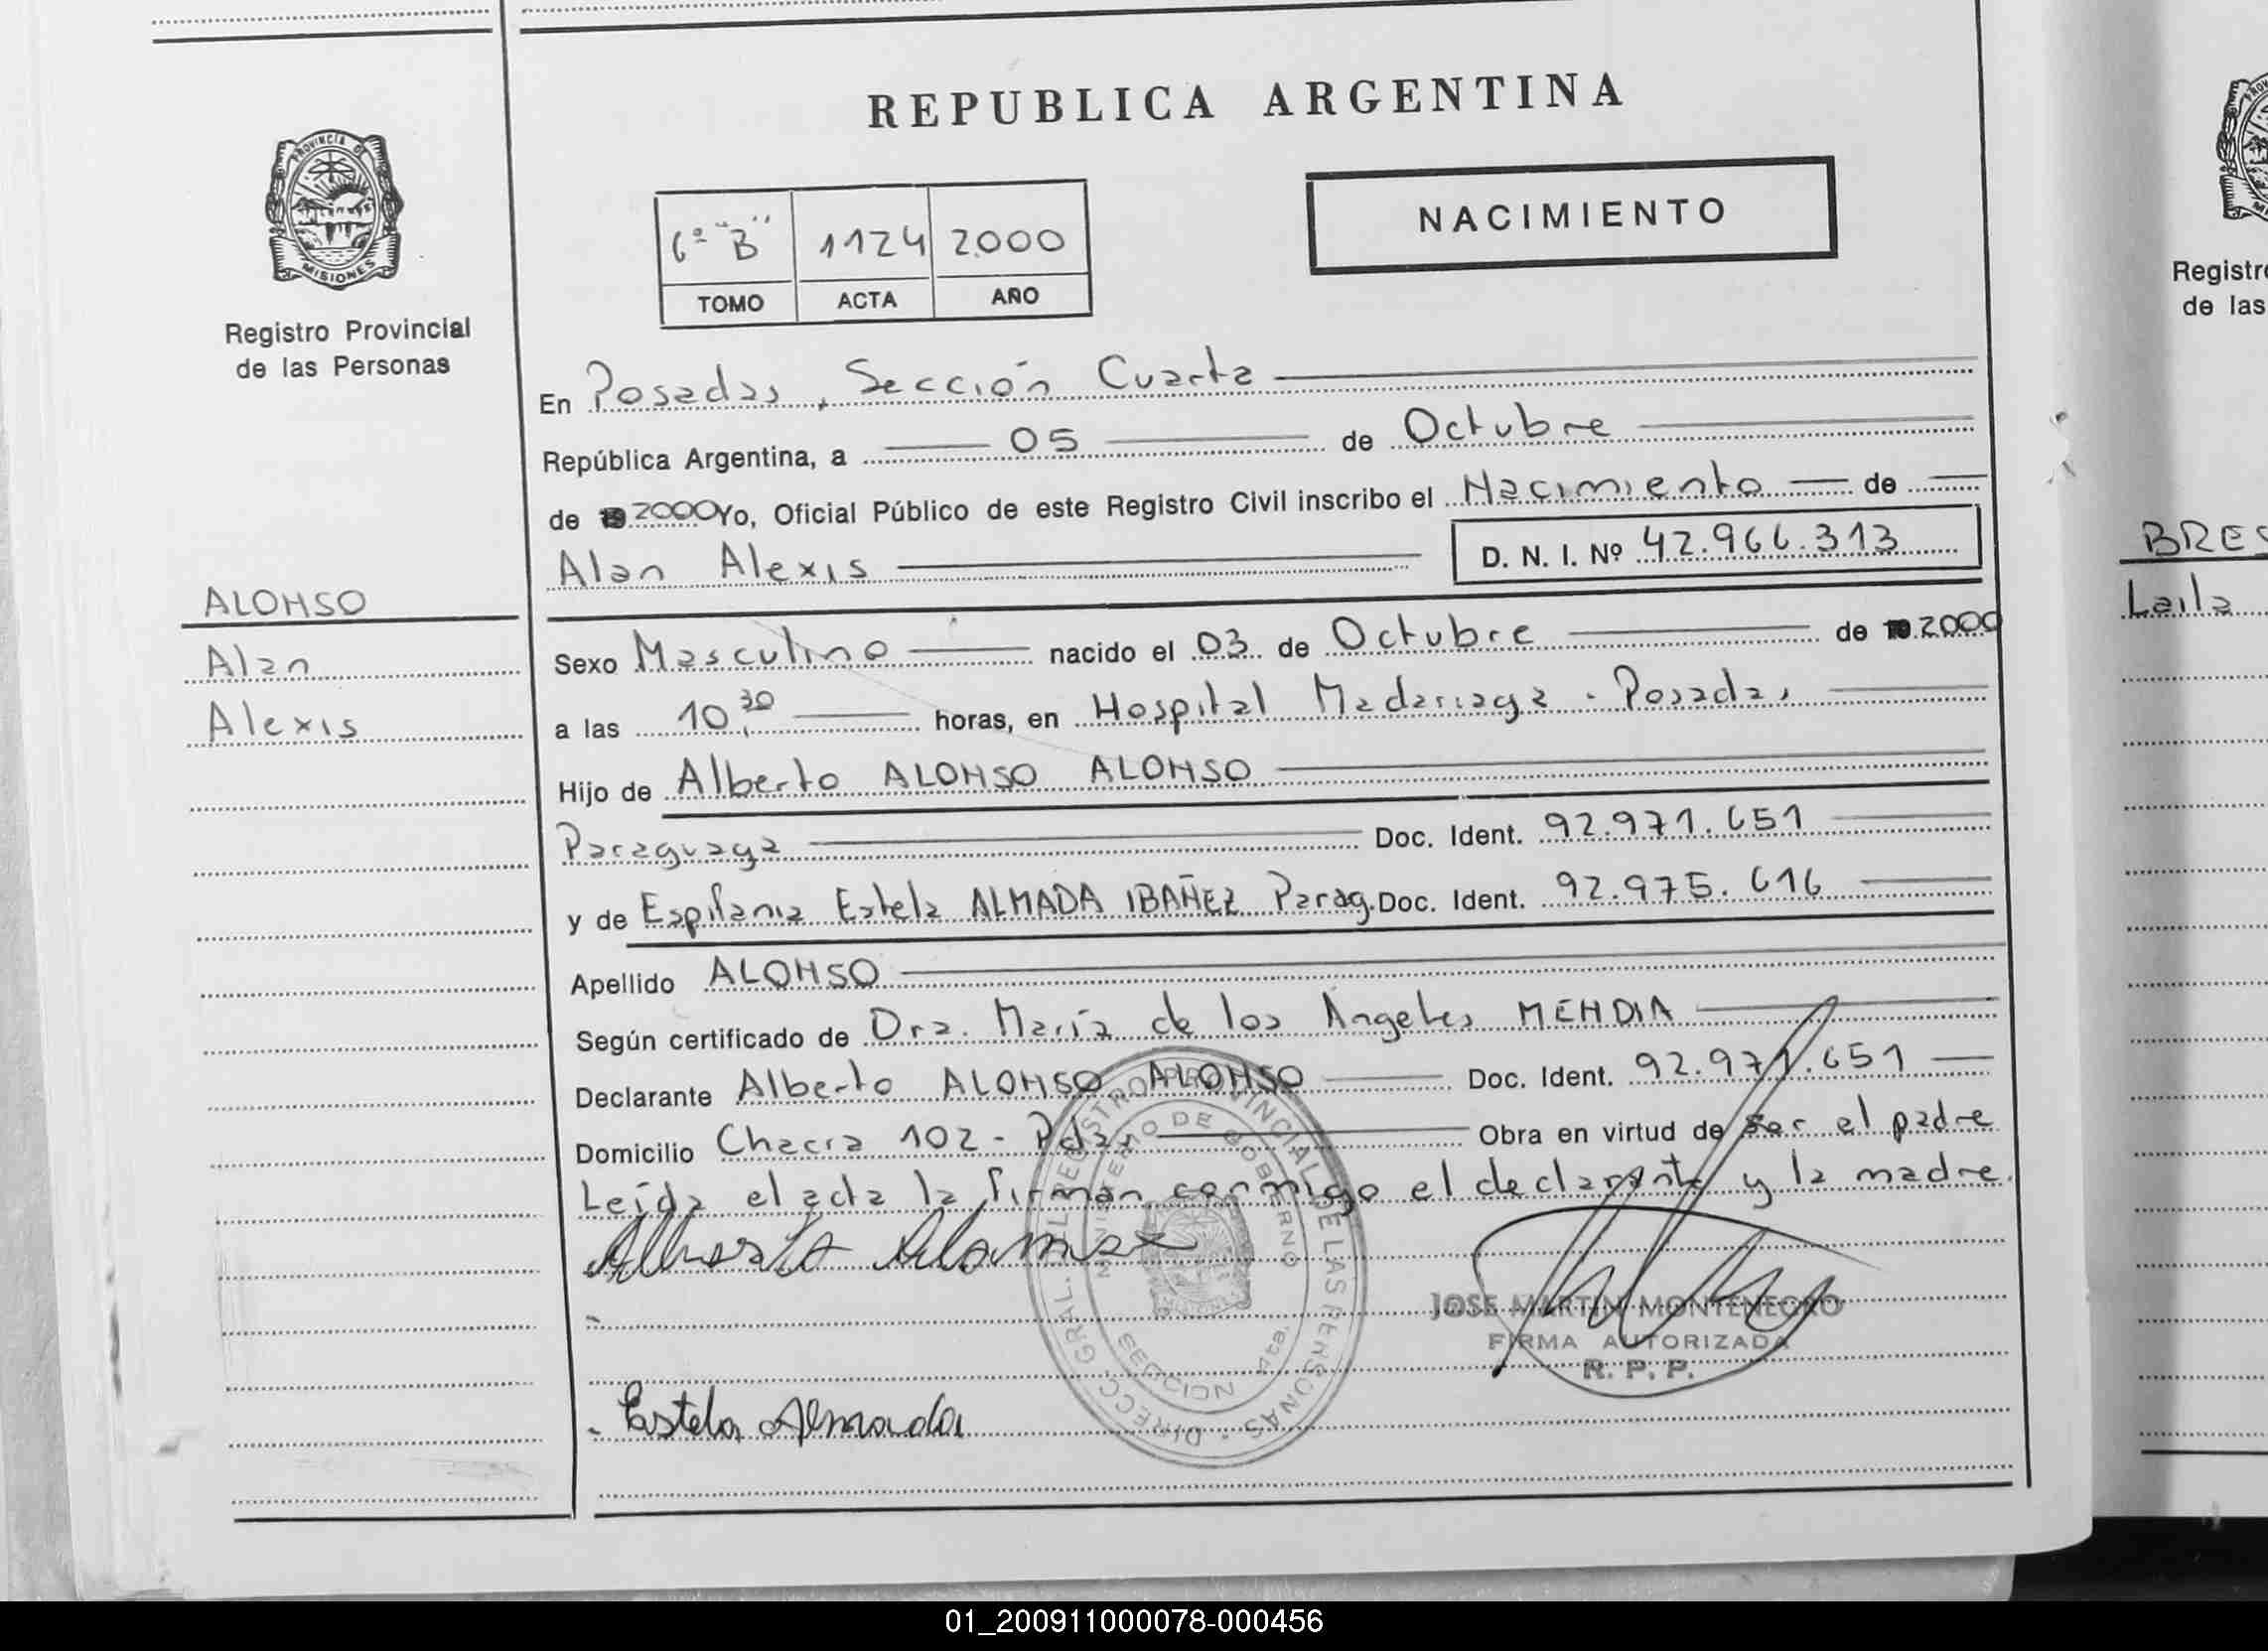 REPUBLICA ARGENTINA
PROVINCIA DE
MISIONES
Registro Provincial
de las Personas
NACIMIENTO
6º "B" 1124 2000
TOMO ACTA AÑO
En Posadas, Sección Cuarta
República Argentina, a 05 de Octubre
de 2000 Yo, Oficial Público de este Registro Civil inscribo el Nacimiento de
Alan Alexis D. N. I. Nº 42.966.313
ALONSO
Alan
Alexis
Sexo Masculino nacido el 03 de Octubre de 2000
a las 10,30 horas, en Hospital Madariaga - Posadas
Hijo de Alberto ALONSO ALONSO
Paraguaya Doc. Ident. 92.971.651
y de Espifania Estela ALMADA IBAÑEZ Parag. Doc. Ident. 92.975.616
Apellido ALONSO
Según certificado de Dra. María de los Angeles MENDIA
Declarante Alberto ALONSO ALONSO Doc. Ident. 92.971.651
Domicilio Chacra 102 - Pdas. Obra en virtud de ser el padre
Leída el acta la firman conmigo el declarante y la madre.
Alberto Alonso
DIRECC. GRAL. DEL REGISTRO PROVINCIAL DE LAS PERSONAS
MINISTERIO DE GOBIERNO
SECCION 4ta.
JOSE MARTIN MONTENEGRO
FIRMA AUTORIZADA
R. P. P.
Estela Almada
Registro
de las
BRES
Laila
01_200911000078-000456